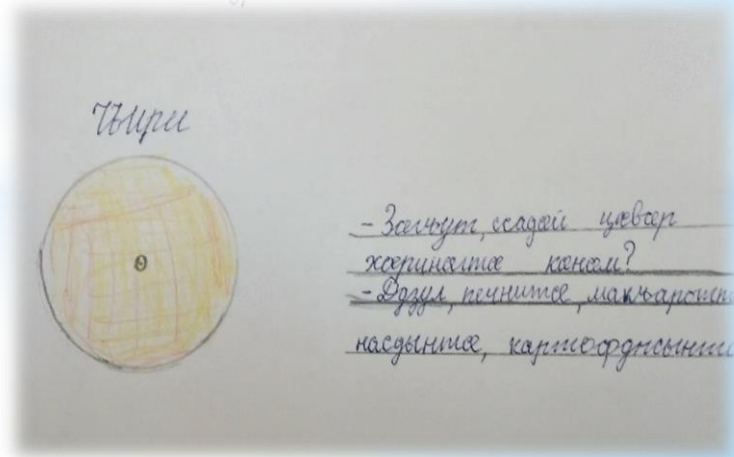 Чъири
- Зæгъут, ссадæй цæвæр
хæринæгтæ кæнæм?
- Дзул, печнитæ, макъаротт
насджынтæ, картофджынт